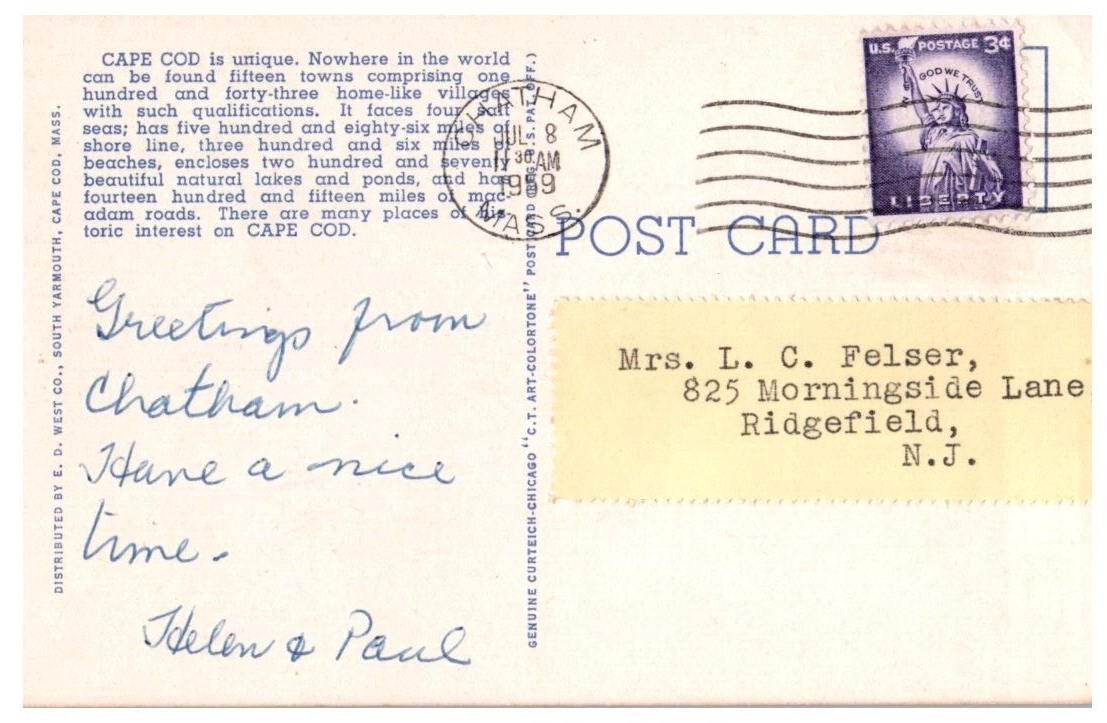 CAPE COD is unique. Nowhere in the world
can be found fifteen towns comprising one
hundred and forty-three home-like villages
with such qualifications. It faces four salt
seas; has five hundred and eighty-six miles of
shore line, three hundred and six miles of
beaches, encloses two hundred and seventy
beautiful natural lakes and ponds, and has
fourteen hundred and fifteen miles of mac-
adam roads. There are many places of his-
toric interest on CAPE COD.
DISTRIBUTED BY E. D. WEST CO., SOUTH YARMOUTH, CAPE COD, MASS.
Greetings from
Chatham.
Have a nice
time.
Helen & Paul
GENUINE CURTEICH-CHICAGO "C.T. ART-COLORTONE" POST CARD (REG. U.S. PAT. OFF.)
CHATHAM
JUL 8
11 30 AM
1959
MASS.
U.S. POSTAGE 3¢
IN GOD WE TRUST
LIBERTY
POST CARD
Mrs. L. C. Felser,
825 Morningside Lane
Ridgefield,
N.J.